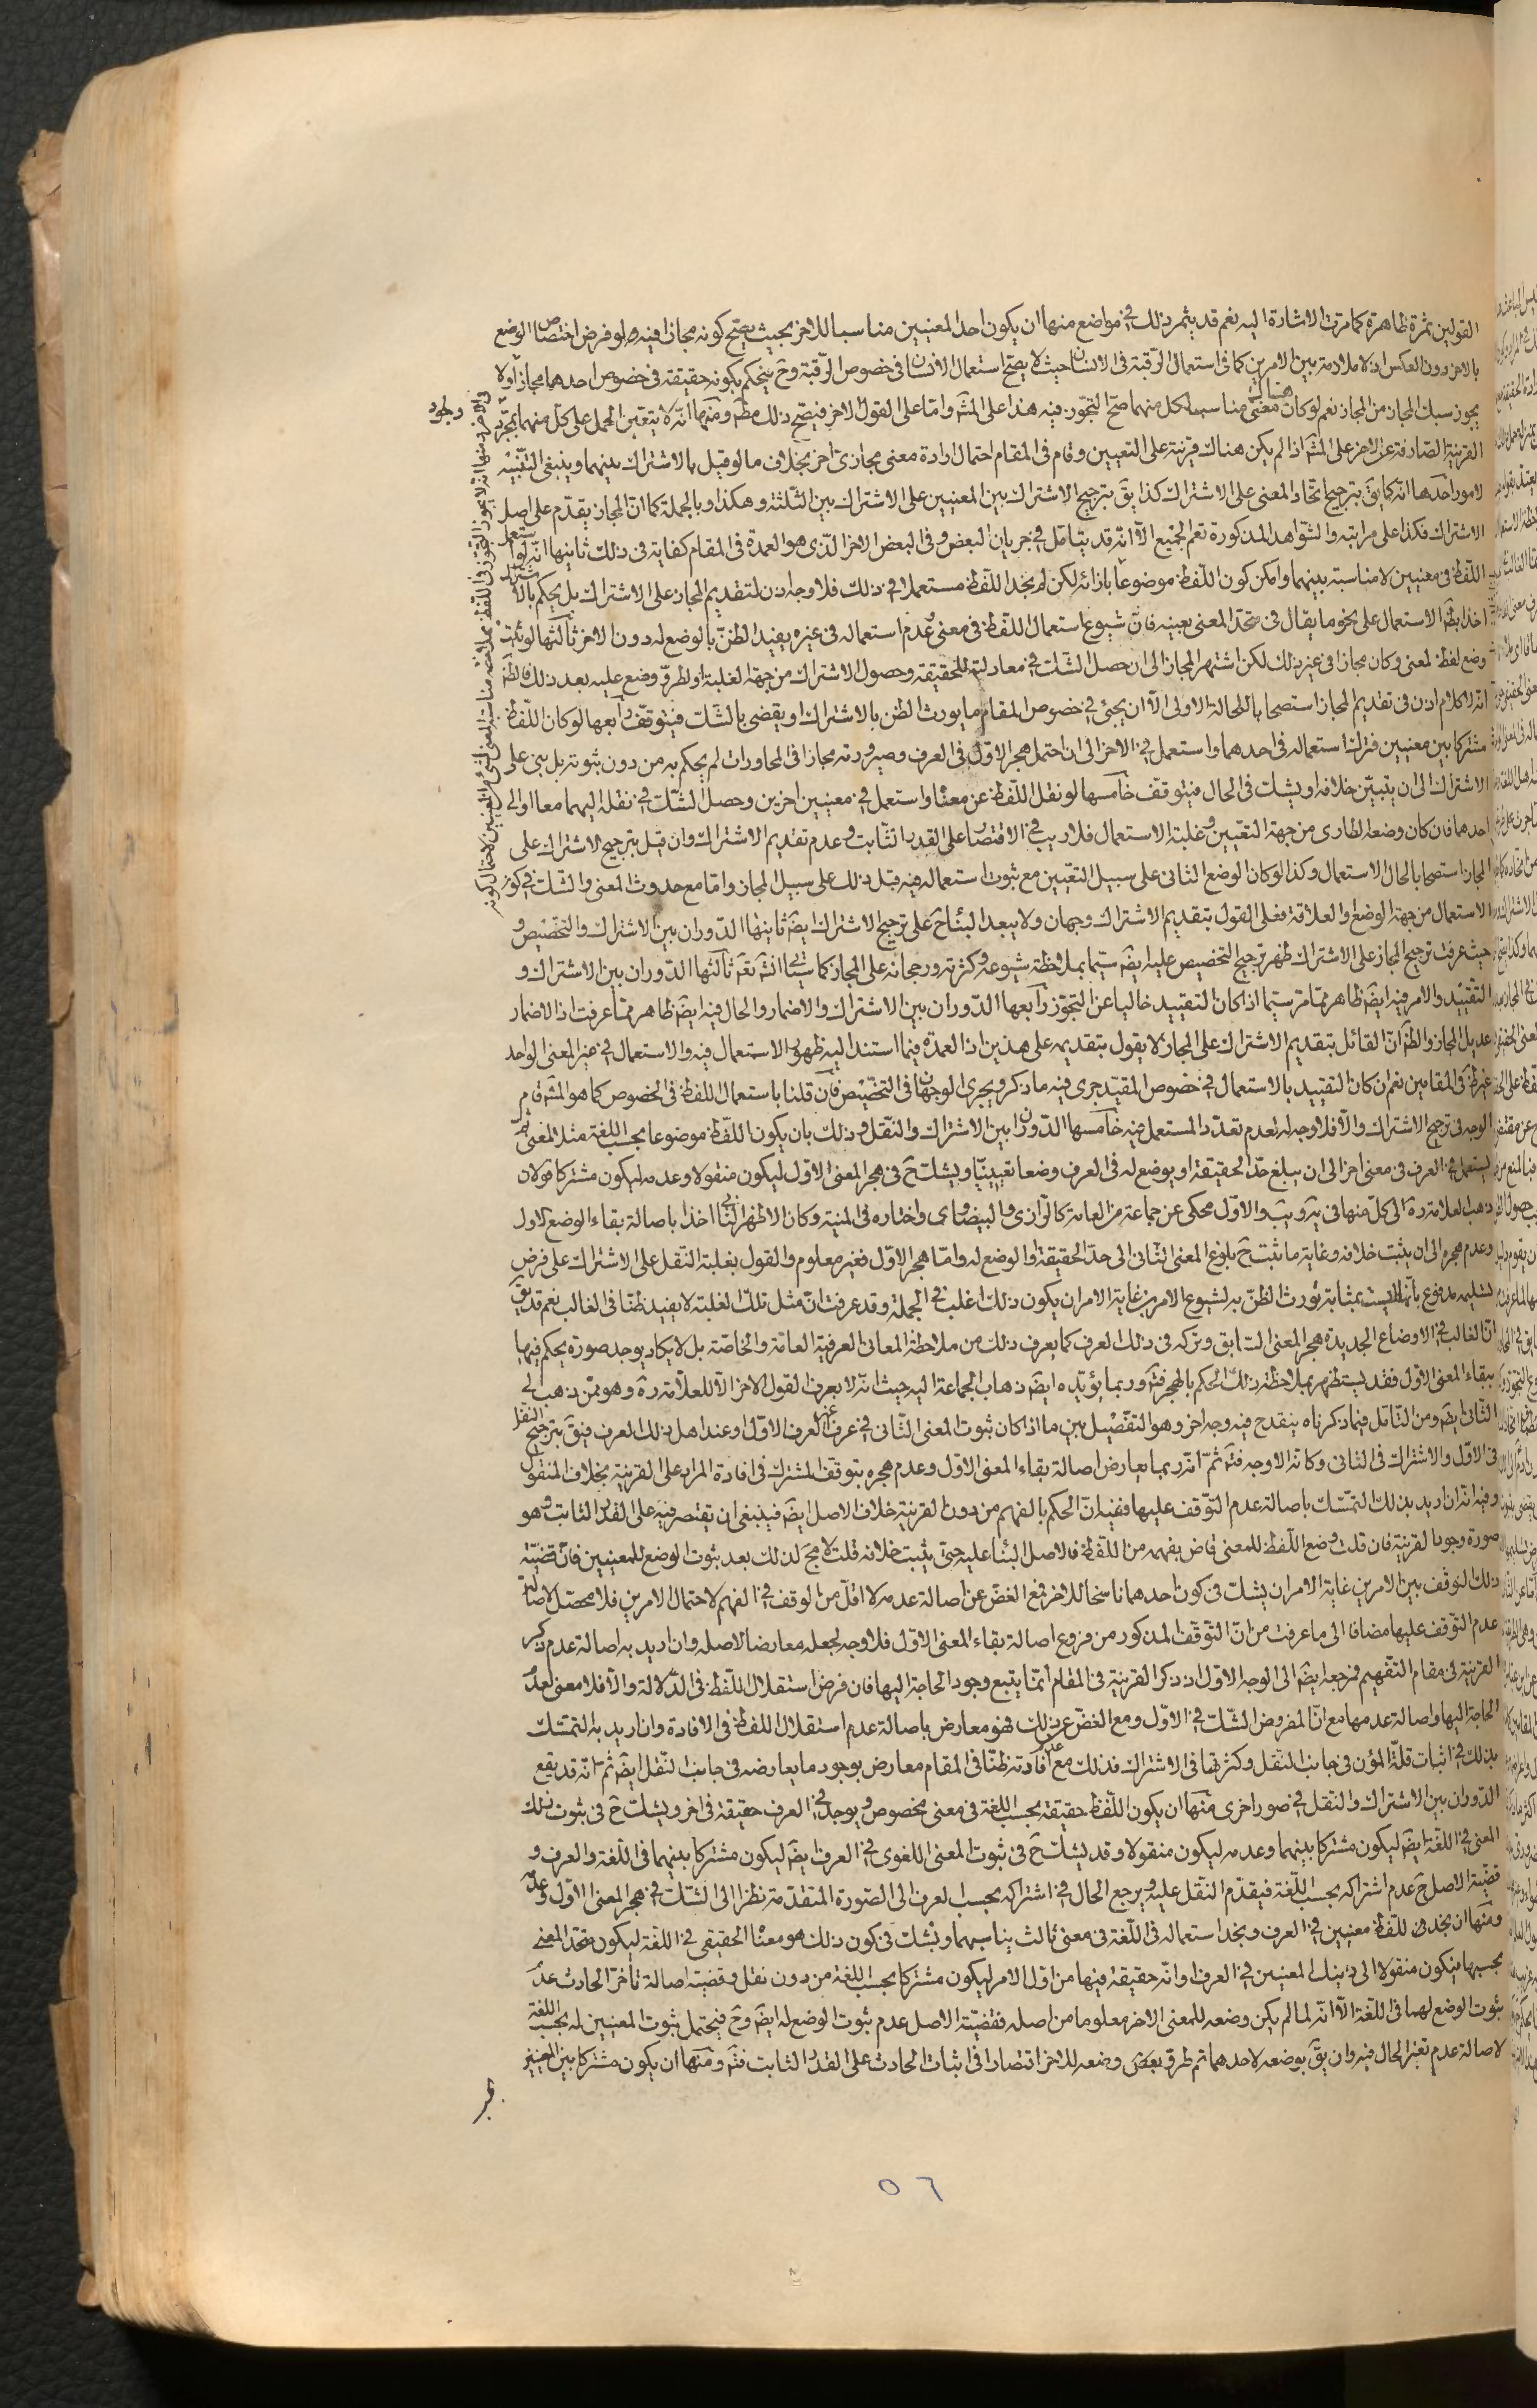 القولين ثمرة ظاهرة كما مرت الاشارة اليه نعم قد يثمر ذلك في مواضع منها ان يكون احد المعنيين مناسبا للاخر بحيث يصح كونه مجازا فيه لو فرض اختصاص الوضع
بالاخر دون العكس اذ لا ملازمة بين الامرين كما في استعمال الرقبة في الانسان حيث لا يصح استعمال الانسان في خصوص الرقبة وح فيحكم بكونه حقيقة في خصوص احدهما مجازا ولا
يجوز سبك المجاز من المجاز نعم لو كان هناك معنى مناسب لكل منهما صح التجوز فيه هذا على المشه واما على القول الاخر فيصح ذلك مطه ومنها انه لا يتعين الحمل على كل منهما بمجرد وجود
القرينة الصارفة عن الاخر على المشه اذا لم يكن هناك قرينة على التعيين وقام في المقام احتمال ارادة معنى مجازي اخر بخلاف ما لو قيل بالاشتراك بينهما وينبغي التنبيه
لامور احدها انه كما يق بترجيح اتحاد المعنى على الاشتراك كذا يق بترجيح الاشتراك بين المعنيين على الاشتراك بين الثلثة وهكذا وبالجملة كما ان المجاز يقدم على اصل
الاشتراك فكذا على مراتبه والشواهد المذكورة تعم الجميع الا انه قد يتامل في جريان البعض وفي البعض الاخر الذي هو العمدة في المقام كفاية في ذلك ثانيها انه لو استعمل
اللفظ في معنيين لا مناسبة بينهما وامكن كون اللفظ موضوعا بازائه لكن لم يجد اللفظ مستعملا في ذلك فلا وجه اذن لتقديم المجاز على الاشتراك بل يحكم بالاشتراك
اخذا بظه الاستعمال على نحو ما يقال في متحد المعنى بعينه فان شيوع استعمال اللفظ في معنى وعدم استعماله في غيره يفيد الظن بالوضع له دون الاخر ثالثها لو ثبت
وضع لفظ لمعنى وكان مجازا في غير ذلك لكن اشتهر المجاز الى ان حصل الشك في معادلته للحقيقة وحصول الاشتراك من جهة الغلبة او لطرو وضع عليه بعد ذلك فالظه
انه لا كلام اذن في تقديم المجاز استصحابا للحالة الاولى الا ان يجئ في خصوص المقام ما يورث الظن بالاشتراك او يقضي بالشك فيتوقف رابعها لو كان اللفظ
مشتركا بين معنيين فترك استعماله في احدهما واستعمل في الاخر الى ان احتمل هجر الاول في العرف وصيرورته مجازا في المحاورات لم يحكم به من دون ثبوته بل يبنى على
الاشتراك الى ان يتبين خلافه او يشك في الحال فيتوقف خامسها لو نقل اللفظ عن معناه واستعمل في معنيين اخرين وحصل الشك في نقله اليهما معا او الى
احدهما فان كان وضعه الطارى من جهة التعين وغلبة الاستعمال فلا ريب في الاقتصار على القدر الثابت وعدم تقديم الاشتراك وان قيل بترجيح الاشتراك على
المجاز استصحابا لحال الاستعمال وكذا لو كان الوضع الثاني على سبيل التعيين مع ثبوت استعماله فيه قبل ذلك على سبيل المجاز واما مع حدوث المعنى والشك في كون
الاستعمال من جهة الوضع او العلاقة فعلى القول بتقديم الاشتراك وجهان ولا يبعد البناء ح على ترجيح الاشتراك ايضه ثانيها الدوران بين الاشتراك والتخصيص و
حيث عرفت ترجيح المجاز على الاشتراك ظهر ترجيح التخصيص عليه ايضه سيما بملاحظة شيوعه وكثرته ورجحانه على المجاز كما سياتي انشه تعه ثالثها الدوران بين الاشتراك و
التقييد والامر فيه ايضه ظاهر مما مر سيما اذا كان التقييد خاليا عن التجوز رابعها الدوران بين الاشتراك والاضمار والحال فيه ايضه ظاهر مما عرفت اذ الاضمار
عديل المجاز والظه ان القائل بتقديم الاشتراك على المجاز لا يقول بتقديمه على هذين اذ العمدة فيما استند اليه ظهور الاستعمال فيه والاستعمال في غير المعنى الواحد
غير ظه في المقامين نعم ان كان التقييد بالاستعمال في خصوص المقيد جرى فيه ما ذكر ويجرى الوجهان في التخصيص فان قلنا باستعمال اللفظ في الخصوص كما هو المشه قام
الوجه في ترجيح الاشتراك والا فلا وجه له لعدم تعدد المستعمل فيه خامسها الدوران بين الاشتراك والنقل وذلك بان يكون اللفظ موضوعا بحسب اللغة مثلا لمعنى ثم
يستعمل في العرف في معنى اخر الى ان يبلغ حد الحقيقة او يوضع له في العرف وضعا تعيينيا ويشك ح في هجر المعنى الاول ليكون منقولا وعدمه ليكون مشتركا قولان
ذهب العلامة ره الى كل منها في يه ويب والاول محكى عن جماعة من العامة كالرازي والبيضاوى واختاره في المنية وكان الاظهر الثاني اخذا باصالة بقاء الوضع الاول
وعدم هجره الى ان يثبت خلافه وغاية ما يثبت ح بلوغ المعنى الثاني الى حد الحقيقة والوضع له واما هجر الاول فغير معلوم والقول بغلبة النقل على الاشتراك على فرض
تسليمه مدفوع بانها ليست بمثابة يورث الظن به لشيوع الامرين غاية الامر ان يكون ذلك اغلب في الجملة وقد عرفت ان مثل تلك الغلبة لا يفيد ظنا في الغالب نعم قد يق
ان الغالب في الاوضاع الجديدة هجر المعنى السابق وتركه في ذلك العرف كما يعرف ذلك من ملاحظة المعاني العرفية العامة والخاصة بل لا يكاد يوجد صورة يحكم فيها
ببقاء المعنى الاول فقد يستظهر بملاحظة ذلك الحكم بالهجر فته وربما يؤيده ايضه ذهاب الجماعة اليه حيث انه لا يعرف القول الاخر الا للعلامة ره وهو ممن ذهب الى
الثاني ايضه ومن التامل فيما ذكرناه ينقدح فيه وجه اخر وهو التفصيل بين ما اذا كان ثبوت المعنى الثاني في عرف غير العرف الاول او عند اهل ذلك العرف فيق بترجيح النقل
في الاول والاشتراك في الثاني وكانه الاوجه فته ثم انه ربما يعارض اصالة بقاء المعنى الاول وعدم هجره بتوقف المشترك في افادة المراد على القرينة بخلاف المنقول
وفيه انه ان اريد بذلك التمسك باصالة عدم التوقف عليها ففيه ان الحكم بالفهم من دون القرينة خلاف الاصل ايضه فينبغي ان يقتصر فيه على القدر الثابت وهو
صورة وجود القرينة فان قلت وضع اللفظ للمعنى قاض بفهمه من اللفظ فالاصل البناء عليه حتى يثبت خلافه قلت لا مجه لذلك بعد ثبوت الوضع للمعنيين فان قضية
ذلك التوقف بين الامرين غاية الامر ان يشك في كون احدهما ناسخا للاخر فمع الغض عن اصالة عدمه لا اقل من الوقف في الفهم لاحتمال الامرين فلا محصل لاصالة
عدم التوقف عليها مضافا الى ما عرفت من ان التوقف المذكور من فروع اصالة بقاء المعنى الاول فلا وجه لجعله معارضا لاصله وان اريد به اصالة عدم ذكر
القرينة في مقام التفهيم فمرجعه ايضه الى الوجه الاول اذ ذكر القرينة في المقام انما يتبع وجود الحاجة اليها فان فرض استقلال اللفظ في الدلالة والا فلا معنى لعدم
الحاجة اليها واصالة عدمها مع ان المفروض الشك في الاول ومع الغض عن ذلك فهو معارض باصالة عدم استقلال اللفظ في الافادة وان اريد به التمسك
بذلك في اثبات قلة المؤن في جانب النقل وكثرتها في الاشتراك فذلك مع عدم افادته ظنا في المقام معارض بوجود ما يعارضه في جانب النقل ايضه ثم انه قد يقع
الدوران بين الاشتراك والنقل في صور اخرى منها ان يكون اللفظ حقيقة بحسب اللغة في معنى مخصوص ويوجد في العرف حقيقة في اخر ويشك ح في ثبوت ذلك
المعنى في اللغة ايضه ليكون مشتركا بينهما وعدمه ليكون منقولا وقد يشك ح في ثبوت المعنى اللغوى في العرف ايضه ليكون مشتركا بينهما في اللغة والعرف و
قضية الاصل ح عدم اشتراكه بحسب اللغة فيقدم النقل عليه ويرجع الحال في اشتراكه بحسب العرف الى الصورة المتقدمة نظرا الى الشك في هجر المعنى الاول وعدمه
ومنها ان يجد للفظ معنيين في العرف ونجد استعماله في اللغة في معنى ثالث يناسبهما ويشك في كون ذلك هو معناه الحقيقي في اللغة ليكون متحد المعنى
بحسبها فيكون منقولا الى ذينك المعنيين في العرف او انه حقيقة فيها من اول الامر ليكون مشتركا بحسب اللغة من دون نقل وقضية اصالة تاخر الحادث عدم
ثبوت الوضع لهما في اللغة الا انه لما لم يكن وضعه للمعنى الاخر معلوما من اصله فقضية الاصل عدم ثبوت الوضع له ايضه وح فيحتمل ثبوت المعنيين له بحسب اللغة
لاصالة عدم تغير الحال فيه وان يق بوضعه لاحدهما ثم طرو وضعه للاخر اقتصارا في اثبات الحادث على القدر الثابت فته ومنها ان يكون مشتركا بين المعنيين
٥٦